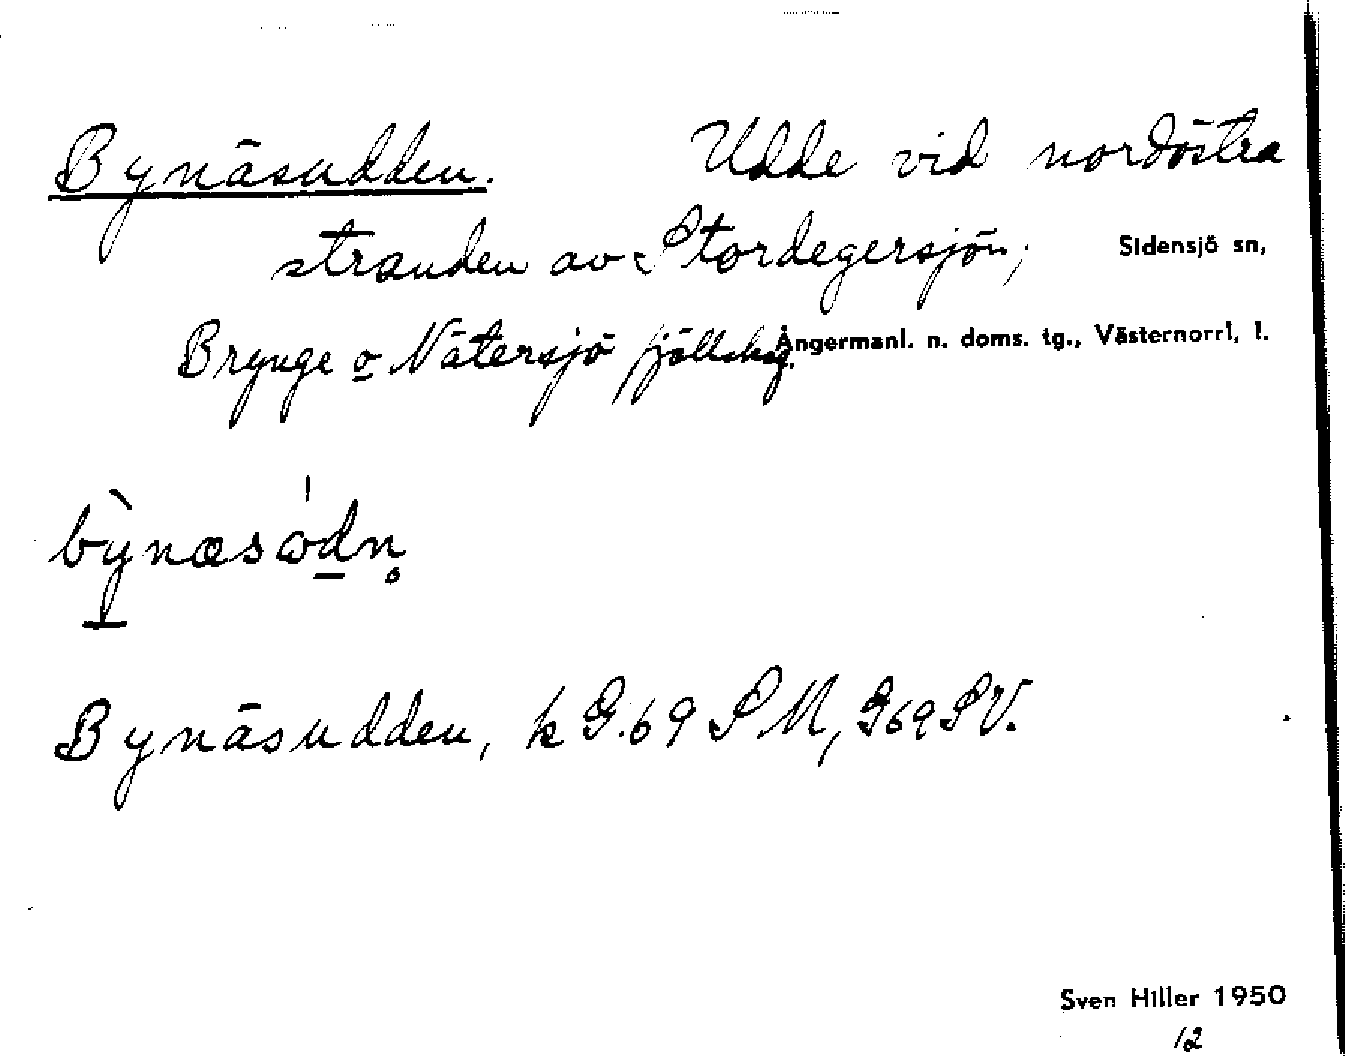 Bynäsudden. Udde vid nordöstra
stranden av Stordegersjön; Sidensjö sn,
Brynge o Nätersjö fjällskog. Ångermanl. n. doms. tg., Västernorrl, l.
bỳnæsωdn̥
Bynäsudden, k G.69 SM, G69SV.
Sven Hiller 1950
12